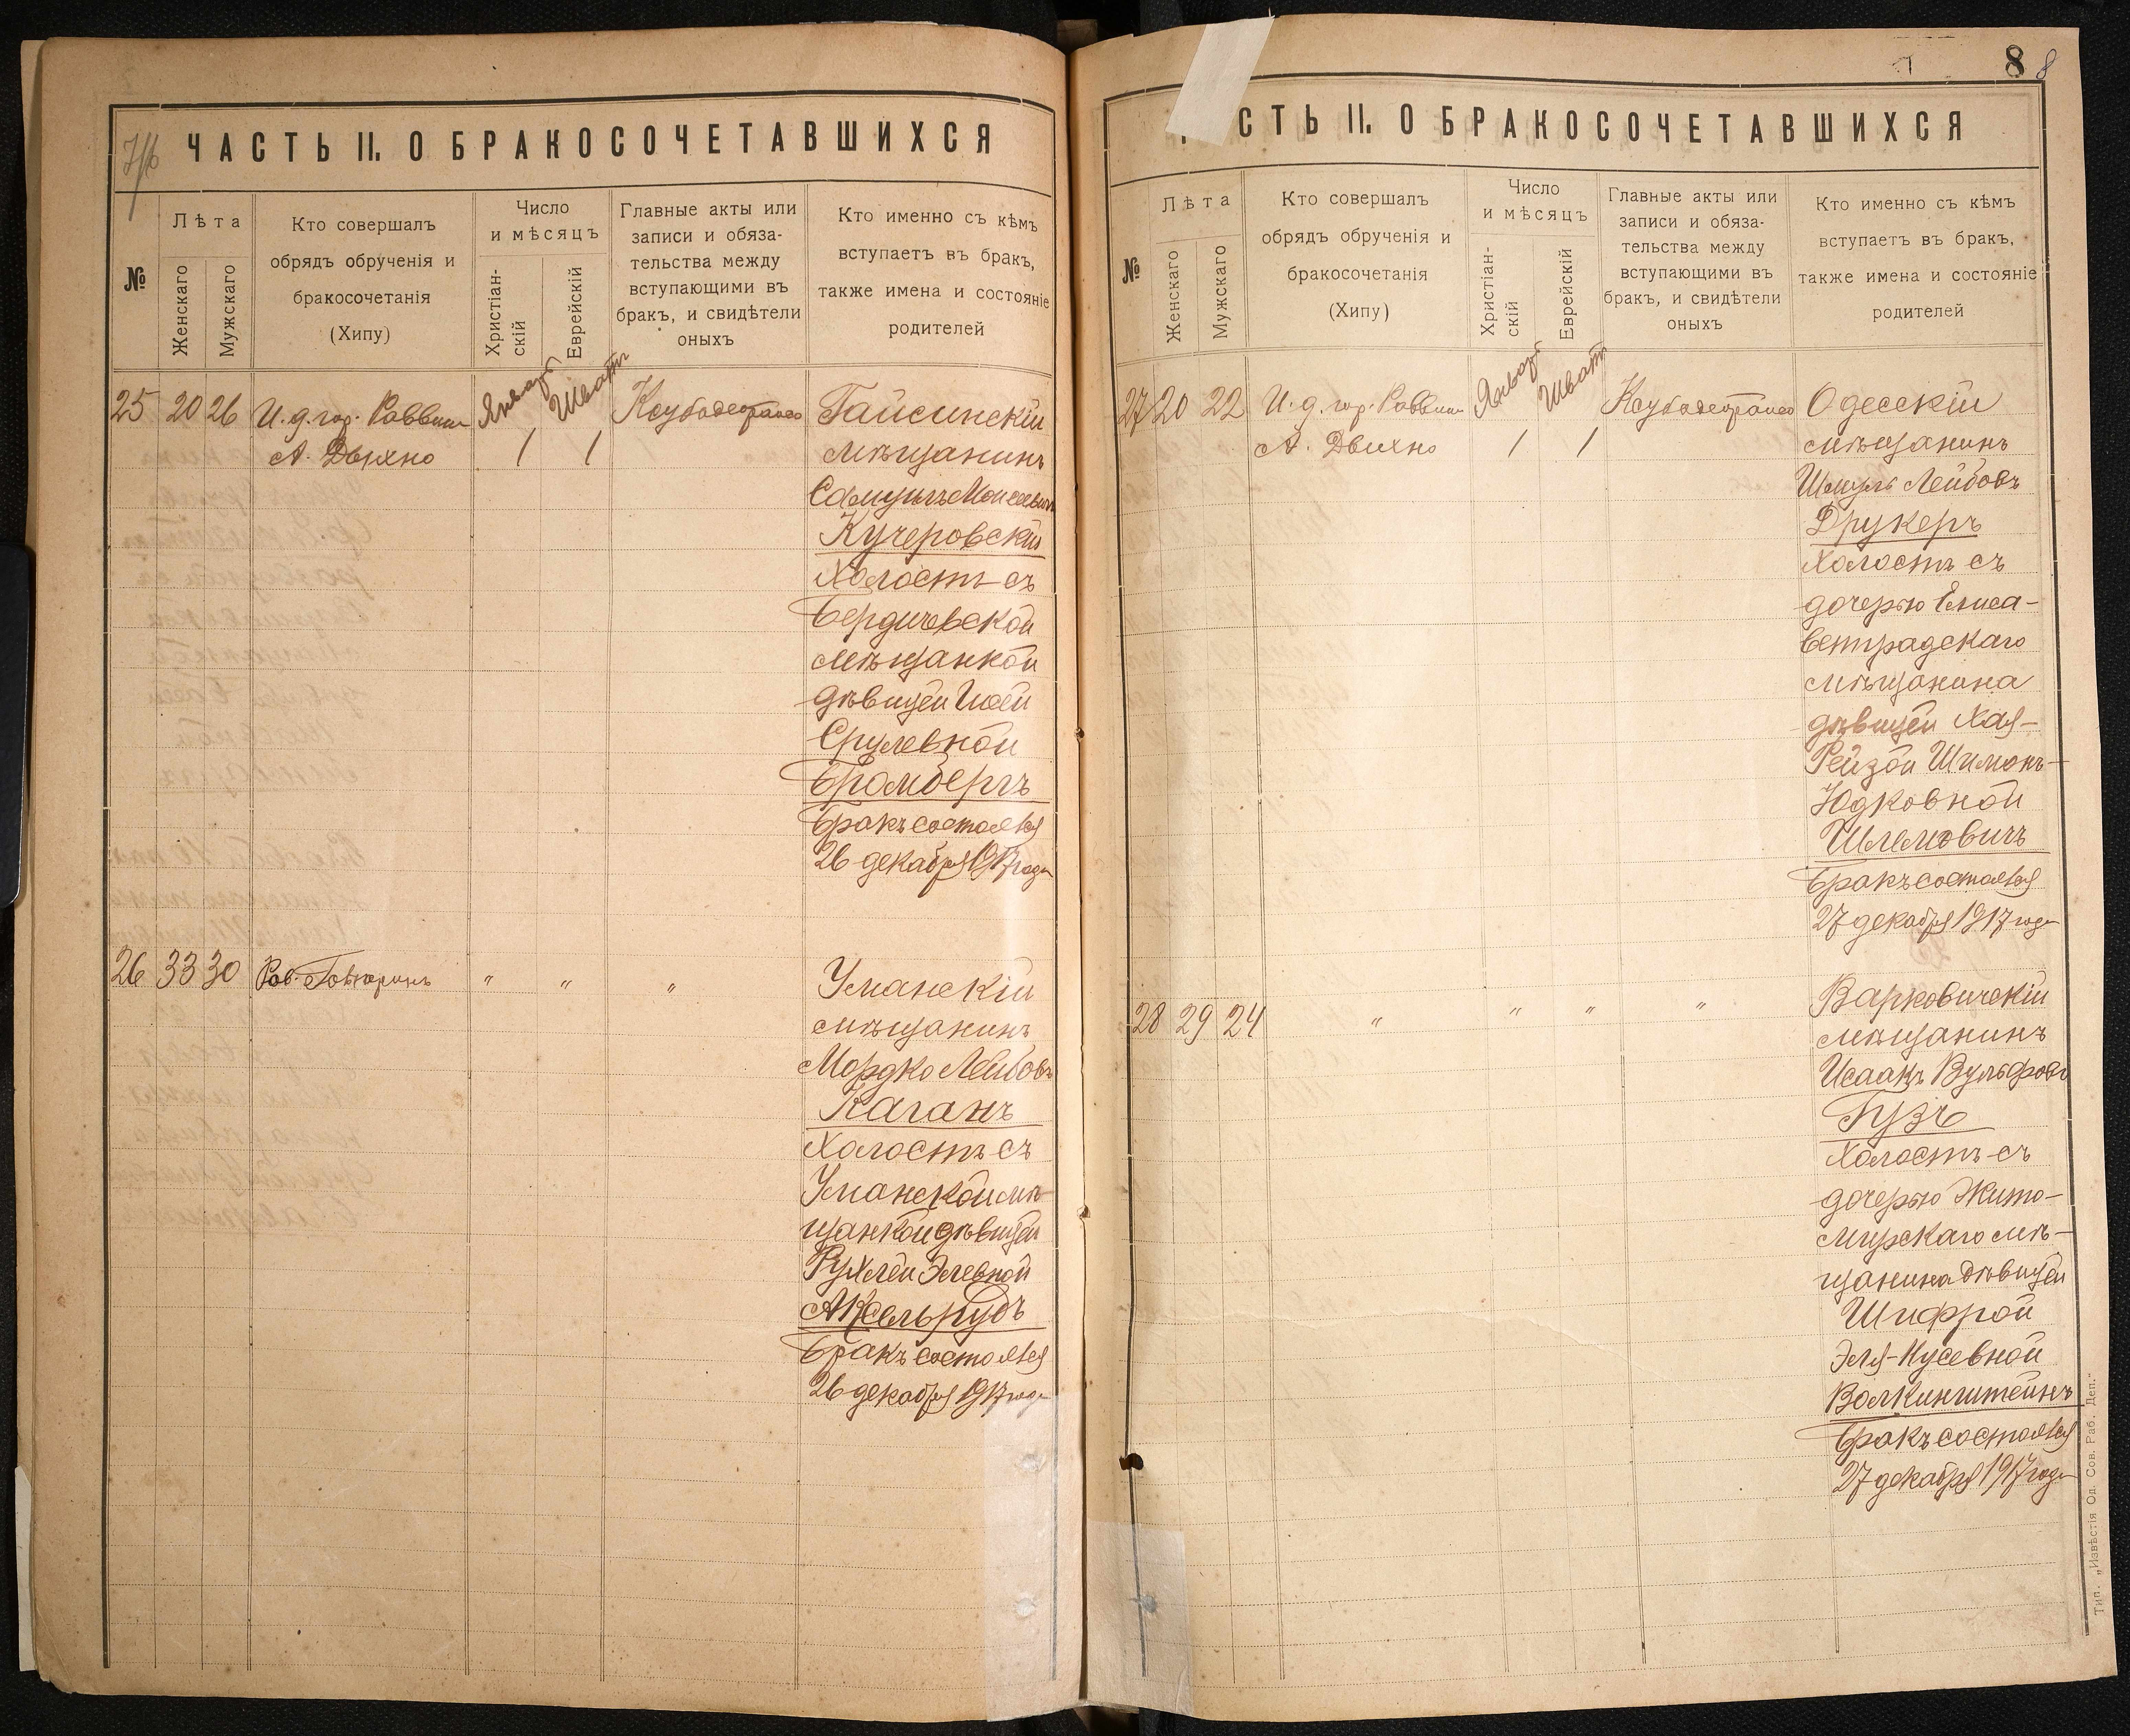 ЧАСТЬ II. О БРАКОСОЧЕТАВШИХСЯ
№
Лѣта
Женскаго
Мужскаго
Кто совершалъ
обрядъ обрученія и
бракосочетанія
(Хипу)
Число
и мѣсяцъ
Христіан-
скій
Еврейскій
Главные акты или
записи и обяза-
тельства между
вступающими въ
бракъ, и свидѣтели
оныхъ
Кто именно съ кѣмъ
вступаетъ въ бракъ,
также имена и состояніе
родителей
25 20 26 И. д. гор. Раввин
А. Дыхно
Январь 1
Шватъ 1
Гайсинскій
мѣщанинъ
Самуилъ Моисеевичъ
Кучеровскій
Холостъ съ
Бердичевской
мѣщанкой
дѣвицей
Срулевной
Бромбергъ
Бракъ состоялся
26 декабря 1917 года
26 33 30 Рав.
" " "
Уманскій
мѣщанинъ
Мордко Лейбовъ
Каганъ
Холостъ съ
Уманской мѣ-
щанкой дѣвицей
Рухлей Элевной
Аксельрудъ
Бракъ состоялся
26 декабря 1917 года
8 8
СТЬ II. О БРАКОСОЧЕТАВШИХСЯ
№
Лѣта
Женскаго
Мужскаго
Кто совершалъ
обрядъ обрученія и
бракосочетанія
(Хипу)
Число
и мѣсяцъ
Христіан-
скій
Еврейскій
Главные акты или
записи и обяза-
тельства между
вступающими въ
бракъ, и свидѣтели
оныхъ
Кто именно съ кѣмъ
вступаетъ въ бракъ,
также имена и состояніе
родителей
27 20 22 И. д. гор. Раввин
А. Дыхно
Январь 1
Шватъ 1
Одесскій
мѣщанинъ
Шмуль Лейбовъ
Друкеръ
Холостъ съ
дочерью Елиса-
ветградскаго
мѣщанина
дѣвицей Хая-
Рейзой Шимонъ-
Юдковной
Шлемовичъ
Бракъ состоялся
27 декабря 1917 года
28 29 24 " " " "
Варковичскій
мѣщанинъ
Исаакъ Вульфовъ
Гузъ
Холостъ съ
дочерью Жито-
мирскаго мѣ-
щанина дѣвицей
Шифрой
Эля-Нусевной
Волкинштейнъ
Бракъ состоялся
27 декабря 1917 года
Тип. „Извѣстія Од. Сов. Раб. Деп."